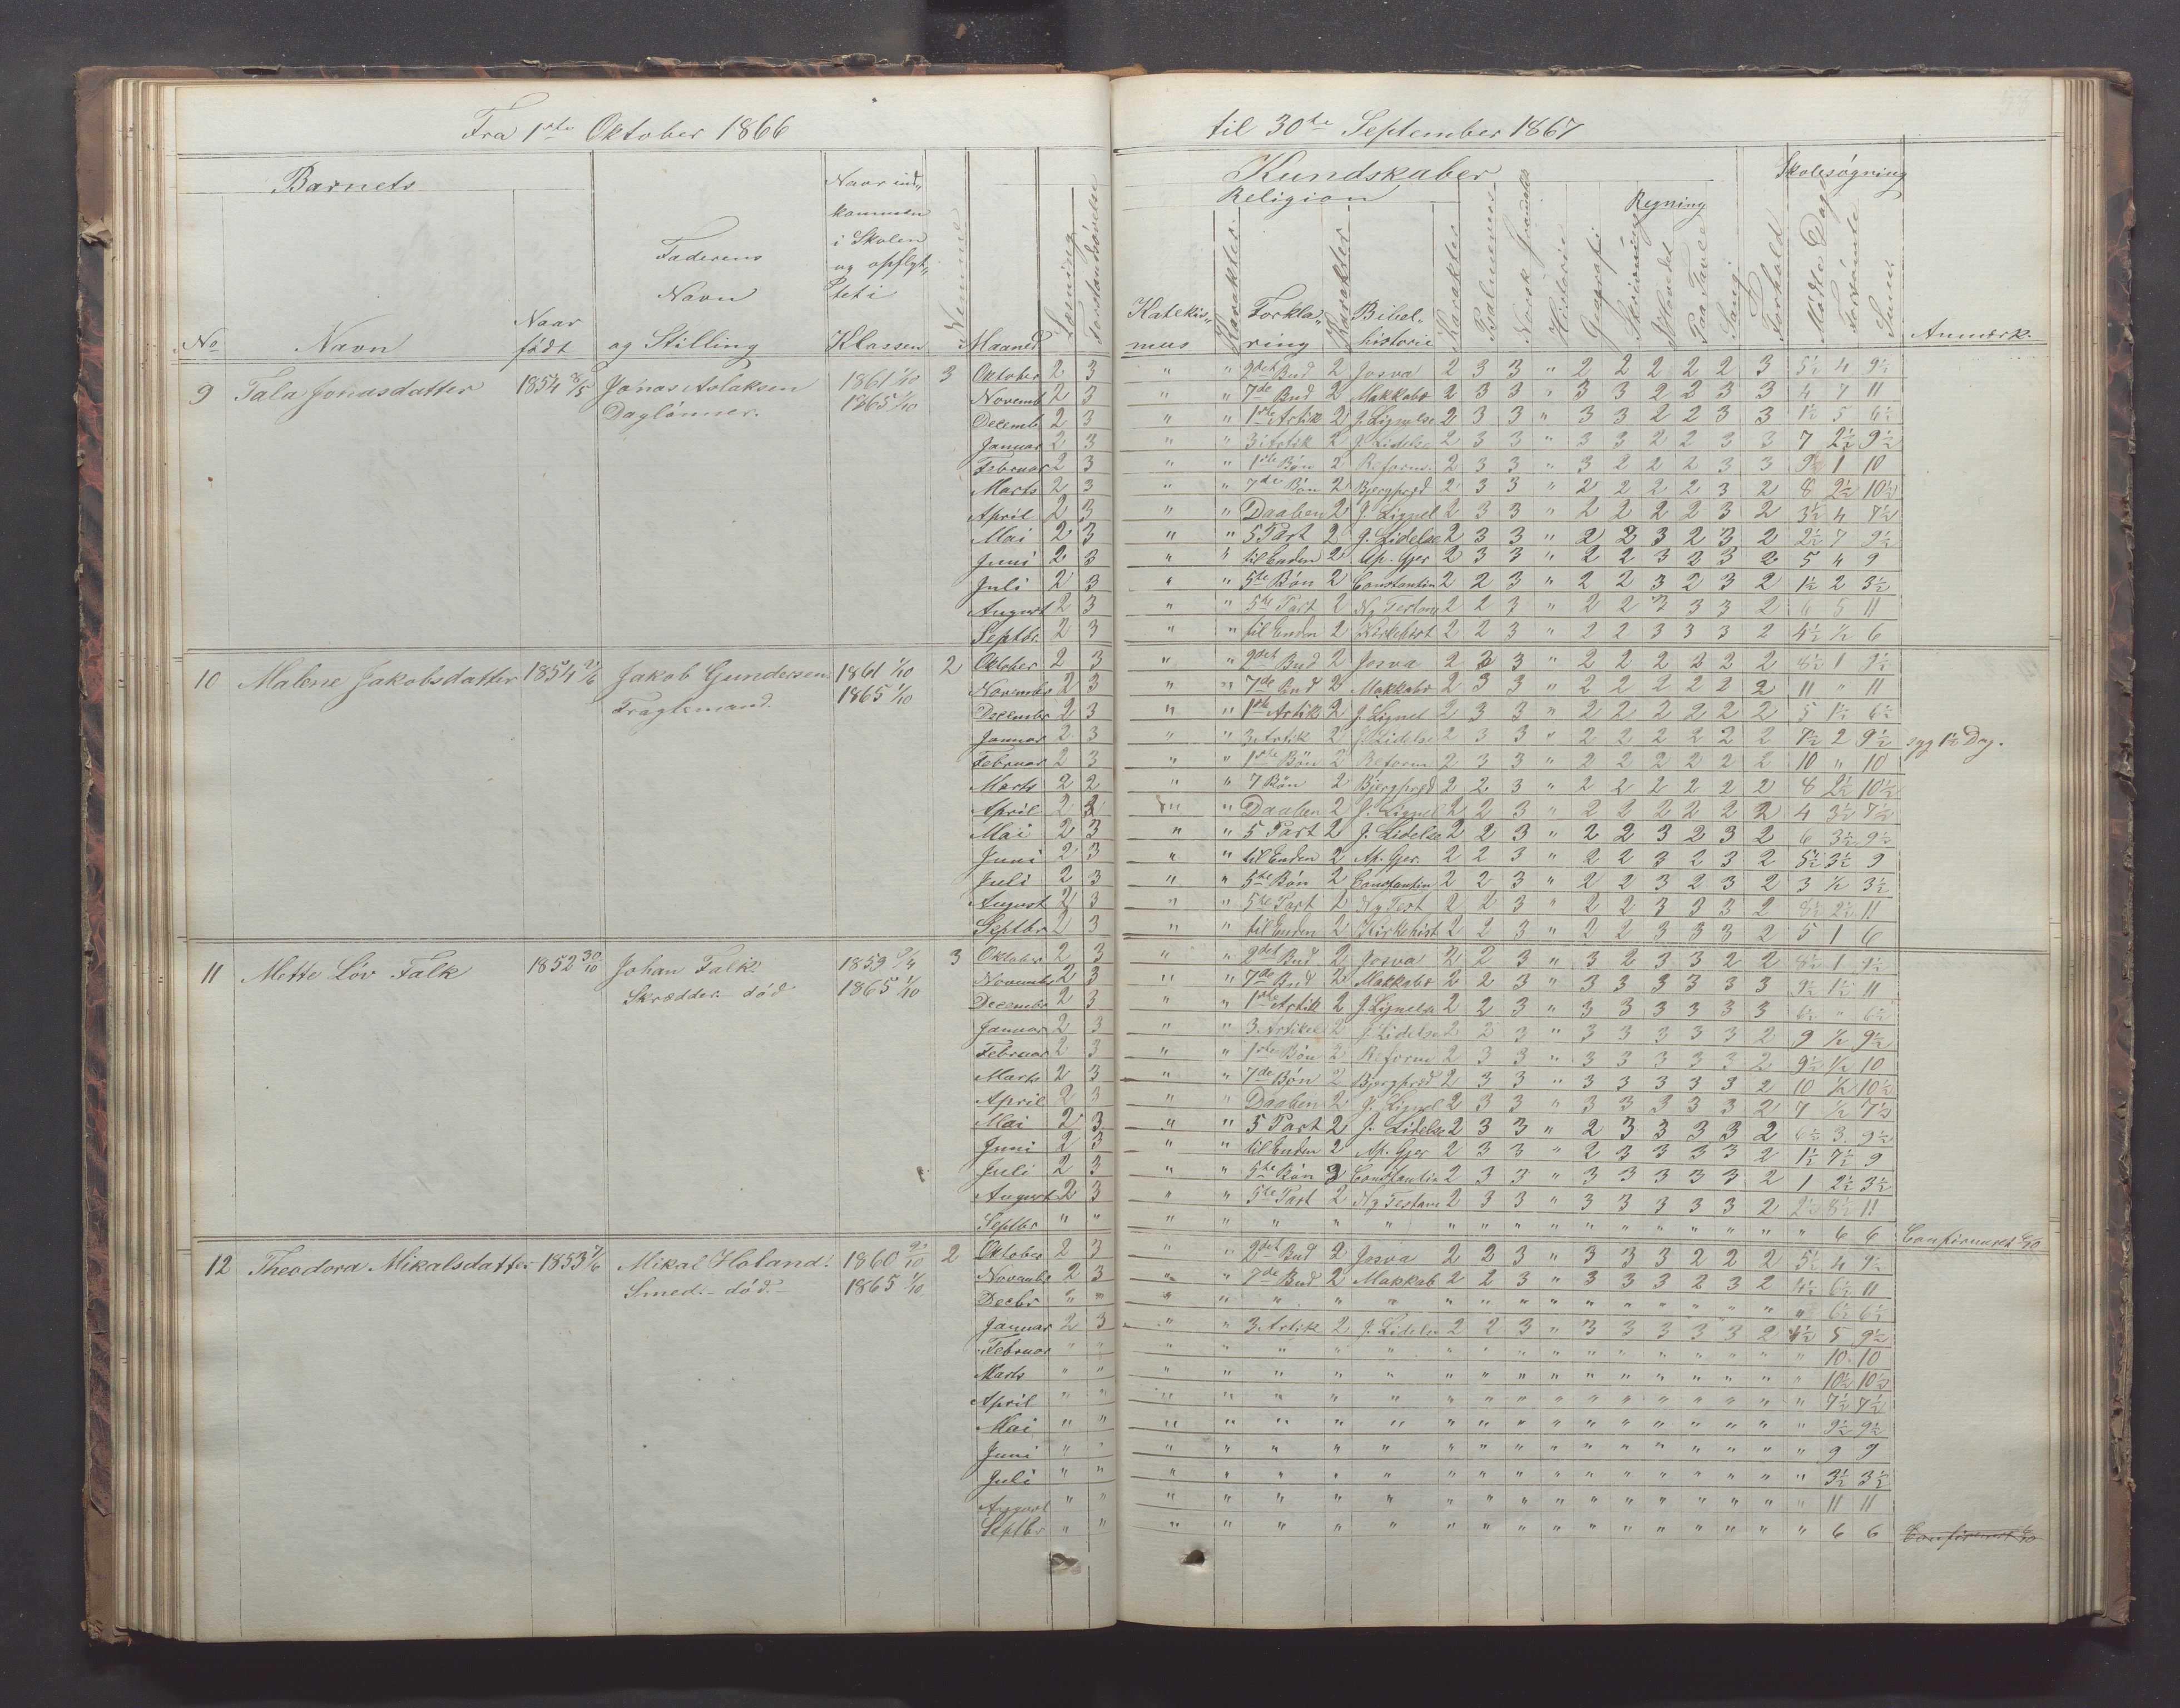 Fra 1ste Oktober 1866 til 30te September 1867
Barnets Kundskaber Skolesøgning
Religion Regning
No Navn Naar født Faderens Navn og Stilling Naar ind„ kommen i Skolen og opflyt„ tet i Klassen Nemme Maaned Læsning Forstandsøvelse Katekis„ mus Karakter Forkla„ ring Karakter Bibel„ historie Karakter Psalmerne Norsk Historie Geografi Skrivning Hovedet Paa Tavle Sang Forhold Mødte Dage Forsømte Sum Anmærk.
9 Tala Jonasdatter 1854 8/5 Jonas Aslaksen 1861 1/10 3 Oktober 2 3 " " 9det Bud 2 Josva 2 3 3 " 2 2 2 2 2 3 5½ 4 9½
Daglønner. 1865 1/10 Novemb 2 3 " " 7de Bud 2 Makkabæ 2 3 3 " 3 3 2 2 3 3 4 7 11
Decemb 2 3 " " 1ste Artik 2 J. Lignelse 2 3 3 " 3 3 2 2 3 3 1½ 5 6½
Januar 2 3 " " 3 Artik 2 J. Lidelse 2 3 3 " 3 3 2 2 3 3 7 2½ 9½
Februar 2 3 " " 1ste Bøn 2 Reform. 2 3 3 " 3 2 2 2 3 3 9 1 10
Marts 2 3 " " 7de Bøn 2 Bjergpræd 2 3 3 " 2 2 2 2 3 2 8 2½ 10½
April 2 3 " " Daaben 2 J. Lignel 2 3 3 " 2 2 2 2 3 2 3½ 4 7½
Mai 2 3 " " 5 Part 2 J. Lidelse 2 3 3 " 2 2 3 2 3 2 2½ 7 9½
Juni 2 3 " " til Enden 2 Ap. Gjer 2 3 3 " 2 2 3 2 3 2 5 4 9
Juli 2 3 " " 5te Bøn 2 Constantin 2 2 3 " 2 2 3 2 3 2 1½ 2 3½
August 2 3 " " 5te Part 2 Ny Testam 2 2 3 " 2 2 3 3 3 2 6 5 11
Septbr. 2 3 " " til Enden 2 Kirkehist 2 2 3 " 2 2 3 3 3 2 4½ ½ 6
10 Malene Jakobsdatter 1854 2/6 Jakob Gundersen 1861 1/10 2 Oktober 2 3 " " 9det Bud 2 Josva 2 3 3 " 2 2 2 2 2 2 8½ 1 9½
Fragtemand. 1865 1/10 Novembr 2 3 " " 7de Bud 2 Makkabæ 2 3 3 " 2 2 2 2 2 2 11 " 11
Decembr 2 3 " " 1ste Artik 2 J. Lignel 2 3 3 " 2 2 2 2 2 2 5 1½ 6½
Januar 2 3 " " 3 Artik 2 J. Lidelse 2 3 3 " 2 2 2 2 2 2 7½ 2 9½ syg 1½ Dag.
Februar 2 3 " " 1ste Bøn 2 Reform 2 3 3 " 2 2 2 2 2 2 10 " 10
Marts 2 2 " " 7 Bøn 2 Bjergpræd 2 2 3 " 2 2 2 2 2 2 8 2½ 10½
April 2 3 " " Daaben 2 J. Lignel 2 2 3 " 2 2 2 2 2 2 4 3½ 7½
Mai 2 3 " " 5 Part 2 J. Lidelse 2 2 3 " 2 2 3 2 3 2 6 3½ 9½
Juni 2 3 " " til Enden 2 Ap. Gjer. 2 2 3 " 2 2 3 2 3 2 5½ 3½ 9
Juli 2 3 " " 5te Bøn 2 Constantin 2 2 3 " 2 2 3 2 3 2 3 ½ 3½
August 2 3 " " 5te Part 2 Ny Test 2 2 3 " 2 2 3 3 3 2 8½ 2½ 11
Septbr 2 3 " " til Enden 2 Kirkehist 2 2 3 " 2 2 3 3 3 2 5 1 6
11 Mette Löv Falk 1852 30/10 Johan Falk. 1859 /4 3 Oktober 2 3 " " 9det Bud 2 Josva 2 2 3 " 3 2 3 3 2 2 8½ 1 9½
Skrædder.- død 1865 1/10 Novembr 2 3 " " 7de Bud 2 Makkabæ 2 2 3 " 3 3 3 3 3 3 9½ 1½ 11
Decembr 2 3 " " 1ste Artik 2 J. Lignelse 2 2 3 " 3 3 3 3 3 3 6½ " 6½
Januar 2 3 " " 3 Artikel 2 J. Lidelse 2 2 3 " 3 3 3 3 3 2 9 ½ 9½
Februar 2 3 " " 1ste Bøn 2 Reform 2 3 3 " 3 3 3 3 3 2 9½ ½ 10
Marts 2 3 " " 7de Bøn 2 Bjergpræd 2 3 3 " 3 3 3 3 3 2 10 ½ 10½
April 2 3 " " Daaben 2 J. Lignel 2 3 3 " 3 3 3 3 3 2 7 ½ 7½
Mai 2 3 " " 5 Part 2 J. Lidelse 2 3 3 " 2 3 3 3 3 2 6½ 3 9½
Juni 2 3 " " til Enden 2 Ap. Gjer 2 3 3 " 2 3 3 3 3 2 1½ 7½ 9
Juli 2 3 " " 5te Bøn 2 Constantin 2 3 3 " 3 3 3 3 3 2 1 2½ 3½
August 2 3 " " 5te Part 2 Ny Testam 2 3 3 " 3 3 3 3 3 2 2½ 8½ 11
Septbr " " " " " " " " " " " " " " " " " " 6 6 Confirmeret 6/10
12 Theodora Mikalsdatter 1853 7/6 Mikal Høland. 1860 /10 2 Oktober 2 3 " " 9det Bud 2 Josva 2 2 3 " 3 3 3 2 2 2 5½ 4 9½
Smed.- død.- 1865 1/10 Novembr 2 3 " " 7de Bud 2 Makkab 2 2 3 " 3 3 3 2 3 2 4½ 6½ 11
Decbr " " " " " " " " " " " " " " " " " " 6½ 6½
Januar 2 3 " " 3 Artik 2 J. Lidelse 2 2 3 " 3 3 3 3 3 2 4½ 5 9½
Februar " " " " " " " " " " " " " " " " " " 10 10
Marts " " " " " " " " " " " " " " " " " " 10½ 10½
April " " " " " " " " " " " " " " " " " " 7½ 7½
Mai " " " " " " " " " " " " " " " " " " 9½ 9½
Juni " " " " " " " " " " " " " " " " " " 9 9
Juli " " " " " " " " " " " " " " " " " " 3½ 3½
August " " " " " " " " " " " " " " " " " " 11 11
Septbr " " " " " " " " " " " " " " " " " " 6 6 Confirmeret 6/10